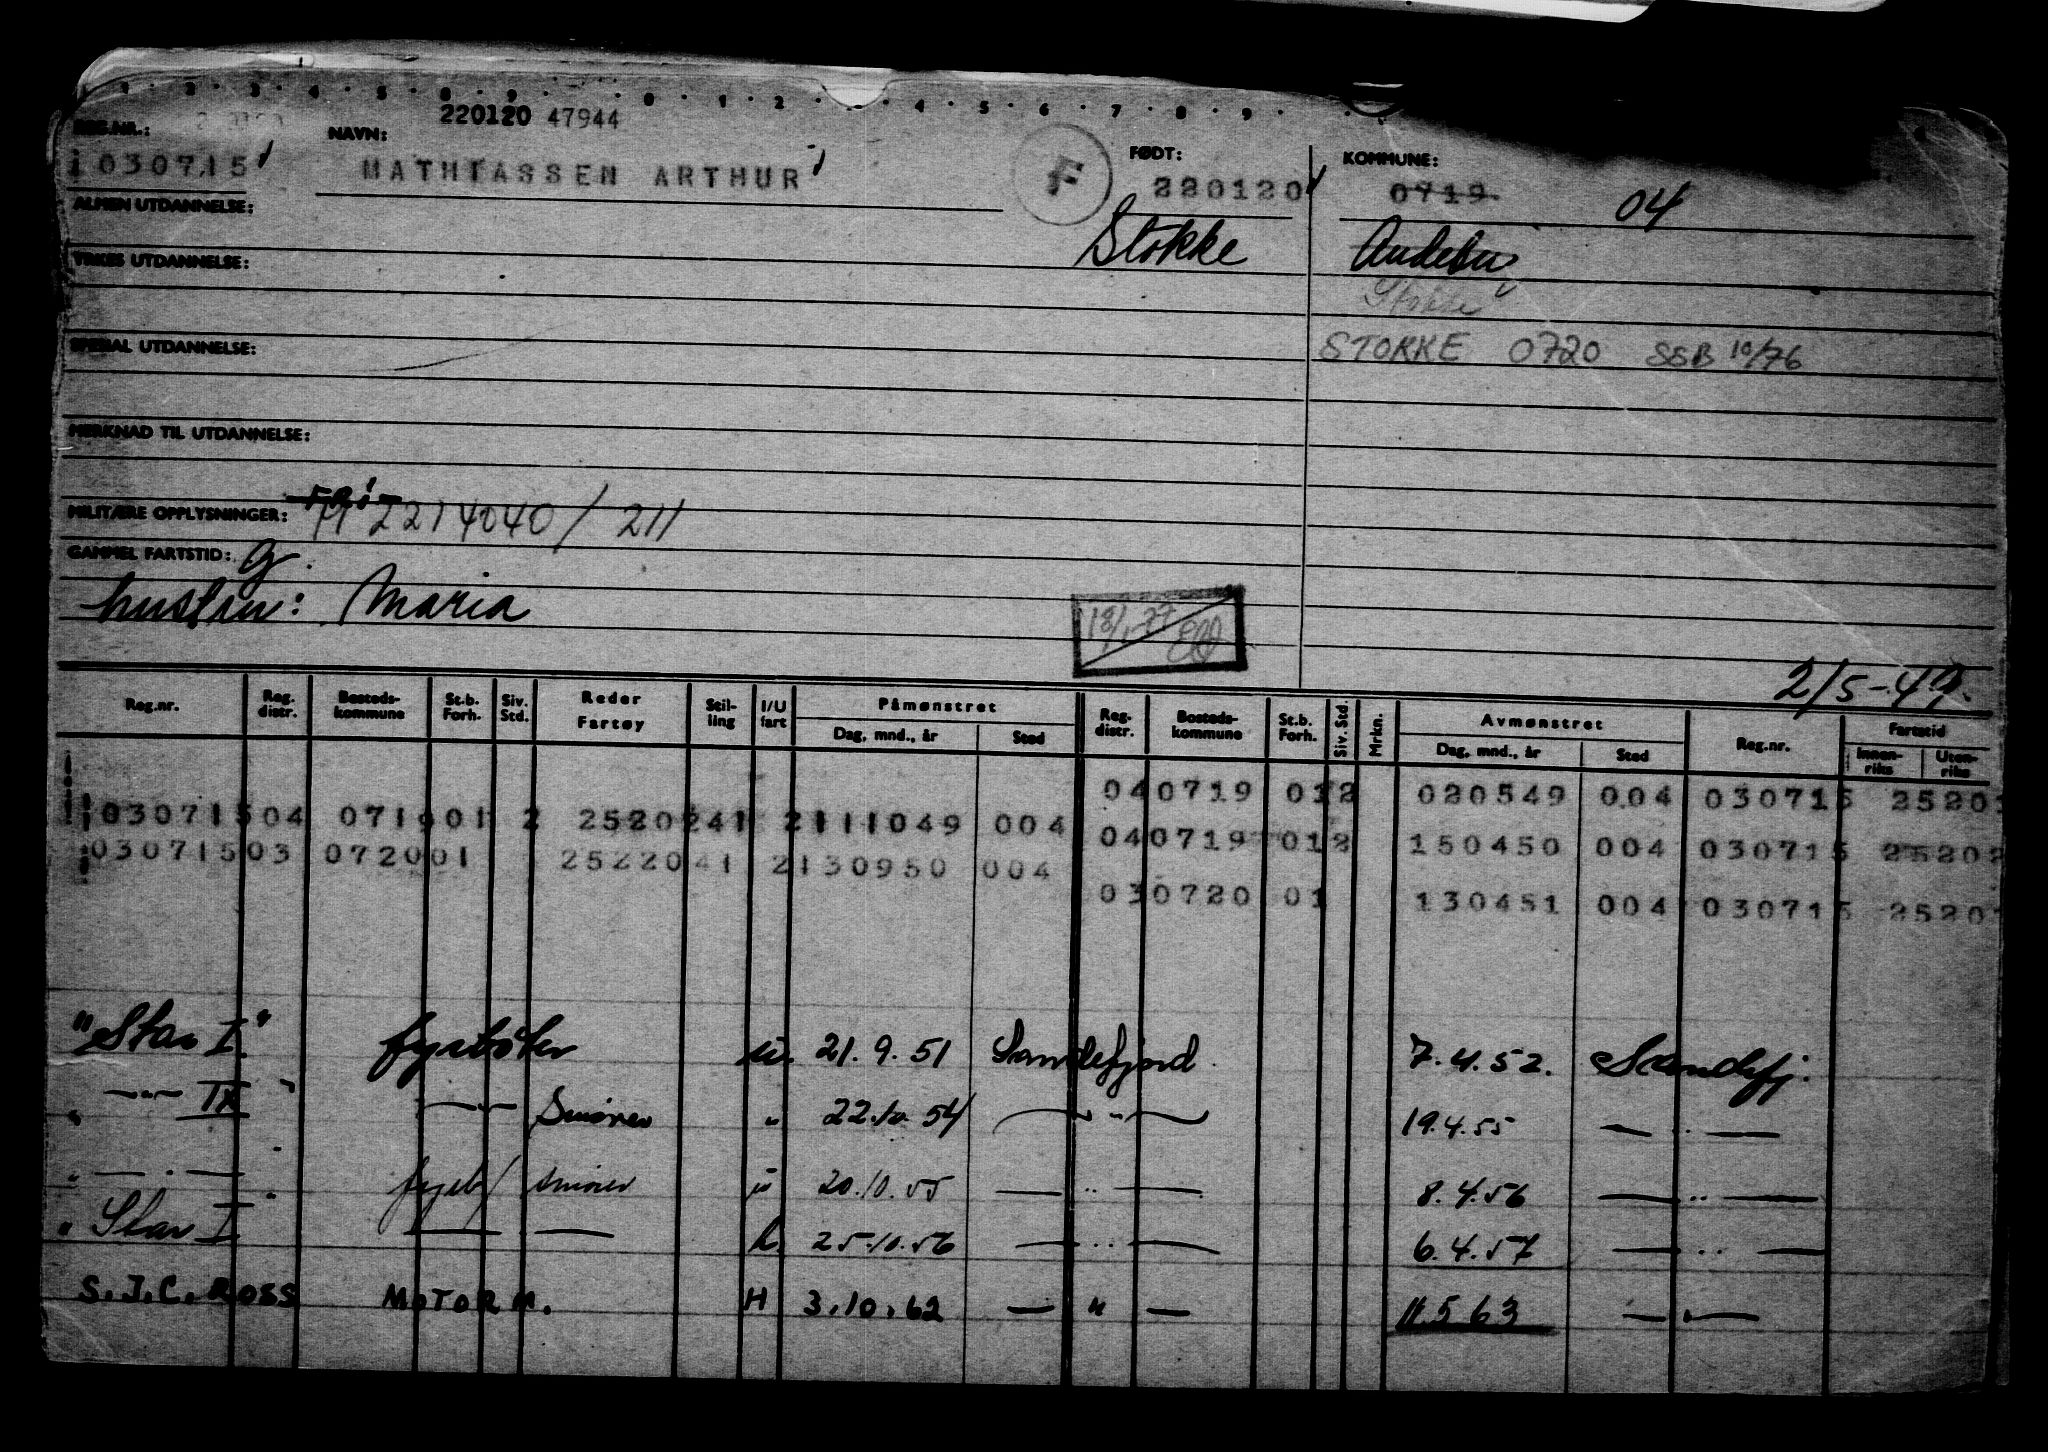 220120 47944
REG.NR.: NAVN: FØDT: KOMMUNE:
030715 MATHIASSEN ARTHUR F 220120 0719 04
ALMEN UTDANNELSE: Stokke Andebu
YRKES UTDANNELSE: Stokke
SPESIAL UTDANNELSE: STOKKE 0720 SSB 10/76
MERKNAD TIL UTDANNELSE:
MILITÆRE OPPLYSNINGER: 2214040/211
GAMMEL FARTSTID: g.
hustru: Maria
18/1 77
2/5-49.
Reg.nr. Reg. distr. Bosteds-kommune St.b. Forh. Siv. Std. Reder Fartøy Stil-ling I/U fart Påmønstret Dag, mnd., år Sted Reg. distr. Bosteds-kommune St.b. Forh. Siv. Std. Mrkn. Avmønstret Dag, mnd., år Sted Reg.nr. Fartstid Innen-riks Uten-riks
040719 012 020549 004 030715 2520
03071504 071901 2 2520241 2111049 004 040719 012 150450 004 030715 25202
03071503 072001 2522041 2130950 004
030720 01 130451 004 030715 2520
"Star I" fyrbøter u. 21.9.51 Sandefjord 7.4.52. Sandefj.
" —"— IX " —"— Smører " 22.10.54 —"— 19.4.55 —"—
" —"— " fyrb/smører u 20.10.55 —"— 8.4.56 —"—
"Star I" — — h. 25.10.56 —"— 6.4.57 —"—
S.J.C. ROSS MOTORM. H 3.10.62 —"— 11.5 63 —"—